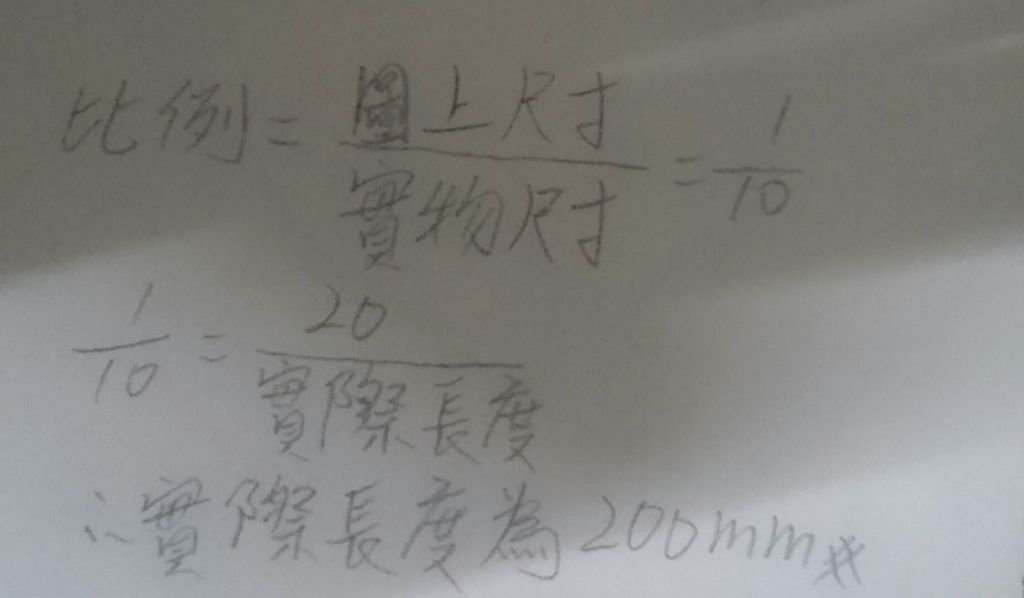 比例 = 圖上尺寸/實物尺寸 = 1/10
1/10 = 20/實際長度
∴實際長度為200mm#